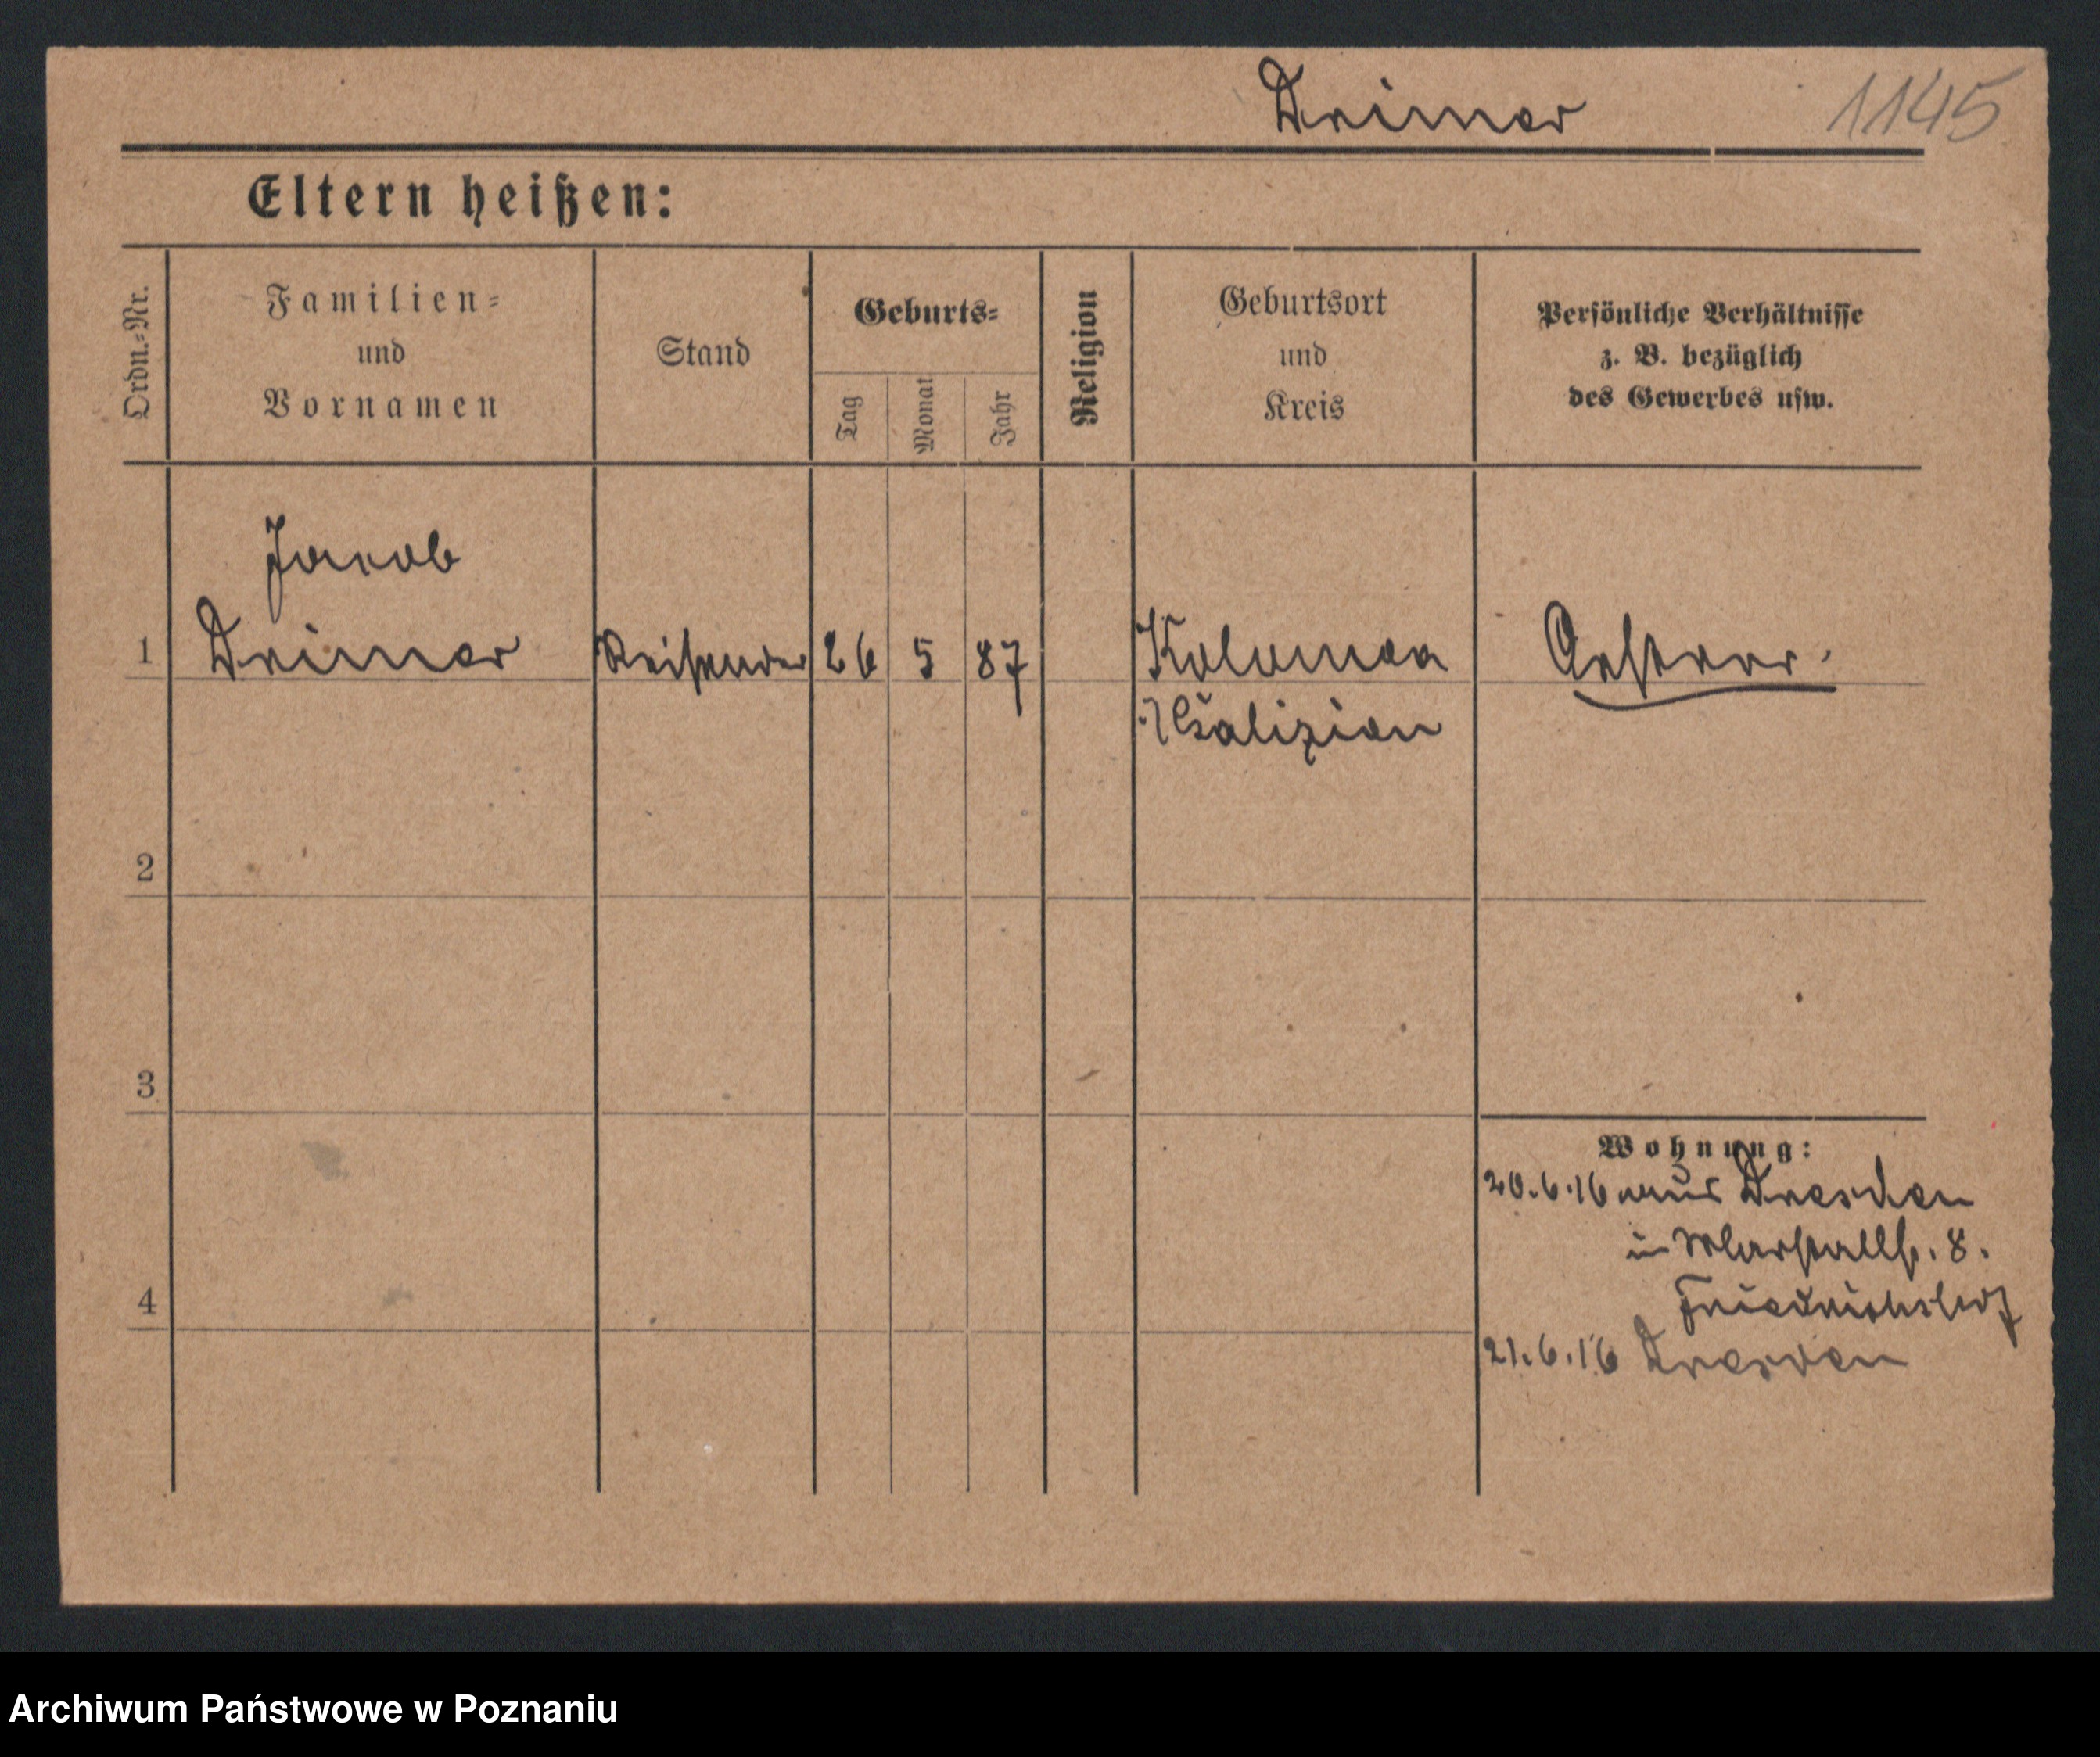 Drimer 1145
Eltern heißen:
Ordn.=Nr.
Familien=
und
Vornamen
Stand
Geburts=
Tag
Monat
Jahr
Religion
Geburtsort
und
Kreis
Persönliche Verhältnisse
z. B. bezüglich
des Gewerbes usw.
Jacob
1 Drimer Reisender 26 5 87 Kolomea Oesterr.
i/Galizien
2
3
4
Wohnung:
20.6.16 aus Dresden
in Marstallst. 8.
Friedrichshof
21.6.16 Dresden
Archiwum Państwowe w Poznaniu